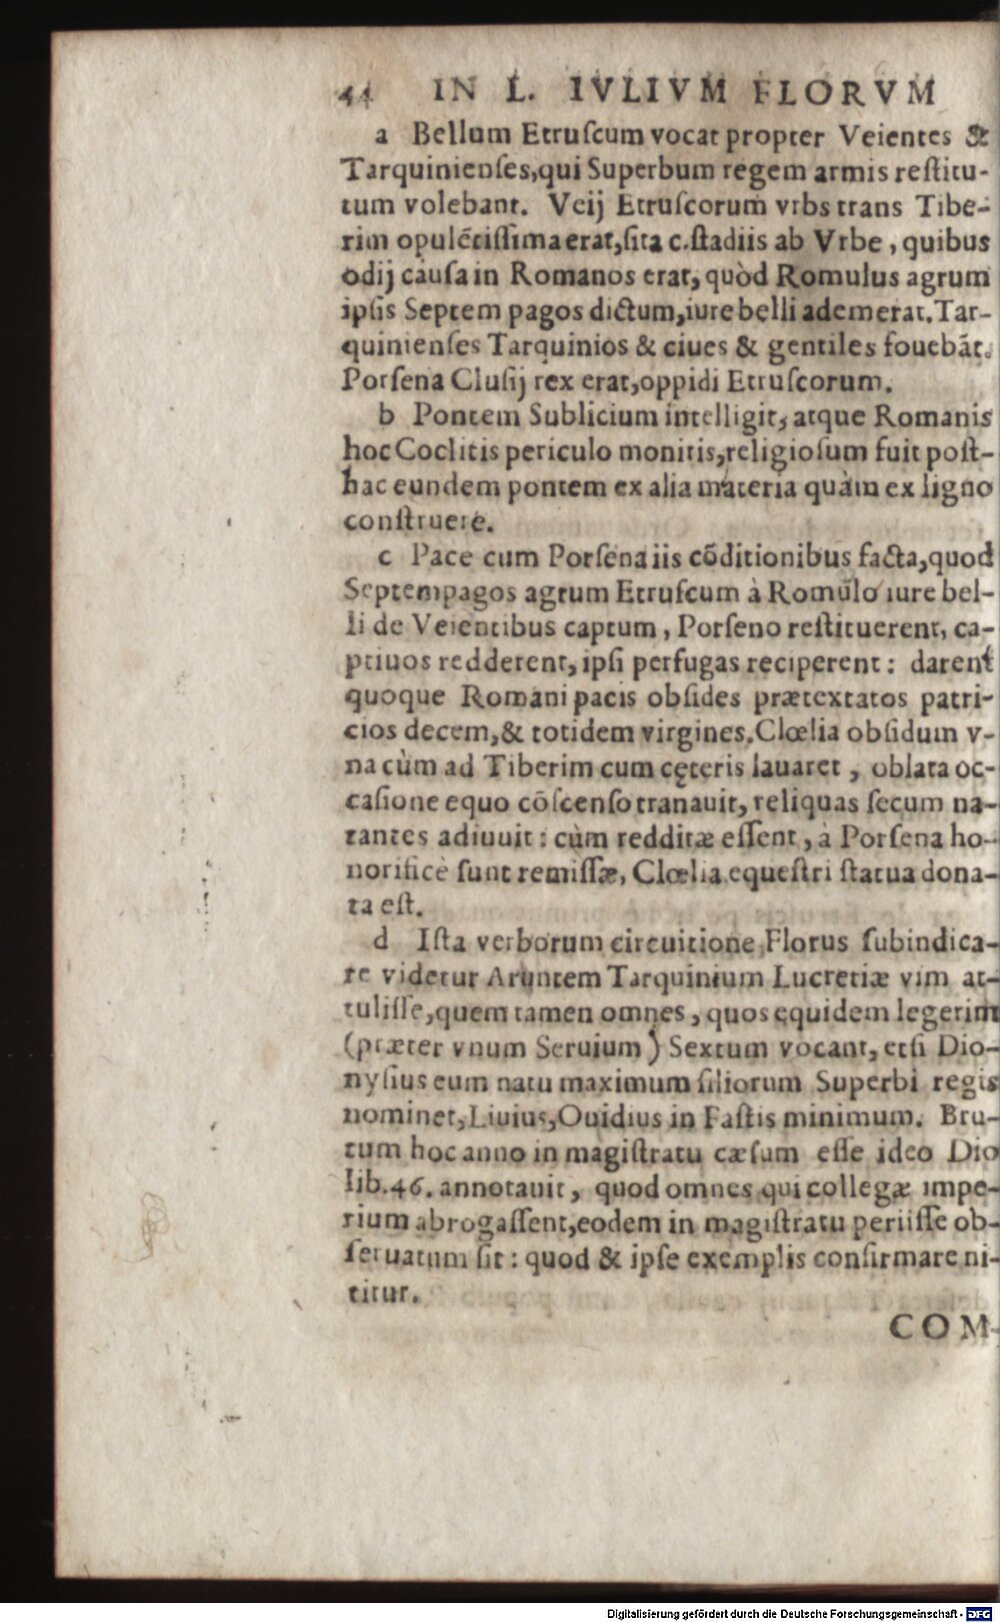 44 IN L. IVLIVM FLORVM
a Bellum Etruſcum vocat propter Veientes &
Tarquinienſes,qui Superbum regem armis reſtitu-
tum volebant. Veij Etruſcorum vrbs trans Tibe-
rim opulẽtiſſima erat,ſita c.ſtadiis ab Vrbe, quibus
odij cauſa in Romanos erat, quòd Romulus agrum
ipſis Septem pagos dictum,iure belli ademerat. Tar-
quinienſes Tarquinios & ciues & gentiles fouebãt.
Porſena Cluſij rex erat,oppidi Etruſcorum.
b Pontem Sublicium intelligit, atque Romanis
hoc Coclitis periculo monitis,religioſum fuit poſt-
hac eundem pontem ex alia materia quàm ex ligno
conſtruere.
c Pace cum Porſena iis cõditionibus facta,quod
Septempagos agrum Etruſcum à Romulo iure bel-
li de Veientibus captum, Porſeno reſtituerent, ca-
ptiuos redderent, ipſi perfugas reciperent: darent
quoque Romani pacis obſides prætextatos patri-
cios decem,& totidem virgines. Clœlia obſidum v-
na cùm ad Tiberim cum cęteris lauaret, oblata oc-
caſione equo cõſcenſo tranauit, reliquas ſecum na-
tantes adiuuit: cùm redditæ eſſent, à Porſena ho-
norificè ſunt remiſſæ, Clœlia equeſtri ſtatua dona-
ta eſt.
d Iſta verborum circuitione Florus ſubindica-
re videtur Aruntem Tarquinium Lucretiæ vim at-
tuliſſe,quem tamen omnes, quos equidem legerim
(præter vnum Seruium) Sextum vocant, etſi Dio-
nyſius eum natu maximum filiorum Superbi regis
nominet,Liuius,Ouidius in Faſtis minimum. Bru-
tum hoc anno in magiſtratu cæſum eſſe ideo Dio
lib.46. annotauit, quod omnes qui collegæ impe-
rium abrogaſſent,eodem in magiſtratu periiſſe ob-
ſeruatum ſit: quod & ipſe exemplis confirmare ni-
titur.
COM-
Digitalisierung gefördert durch die Deutsche Forschungsgemeinschaft - DFG